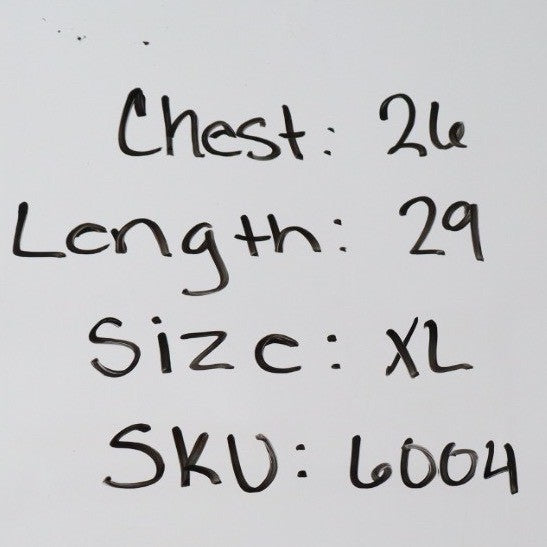 Chest: 26
Length: 29
Size: XL
SKU: 6004